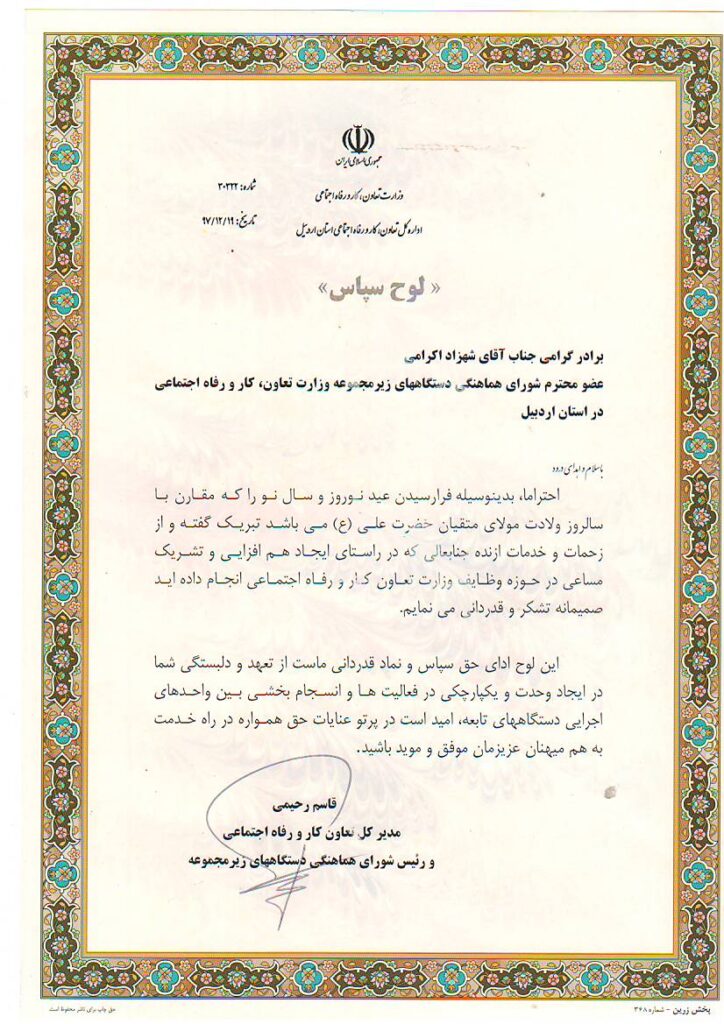 جمهوری اسلامی ایران
وزارت تعاون، کار و رفاه اجتماعی
اداره کل تعاون، کار و رفاه اجتماعی استان اردبیل
شماره: ۳۰۳۲۲
تاریخ: ۹۷/۱۲/۱۹
« لوح سپاس»
برادر گرامی جناب آقای شهزاد اکرامی
عضو محترم شورای هماهنگی دستگاههای زیرمجموعه وزارت تعاون، کار و رفاه اجتماعی
در استان اردبیل
باسلام و اهدای درود
احتراما، بدینوسیله فرارسیدن عید نوروز و سال نو را که مقارن با
سالروز ولادت مولای متقیان حضرت علی (ع) می باشد تبریک گفته و از
زحمات و خدمات ارزنده جنابعالی که در راستای ایجاد هم افزایی و تشریک
مساعی در حوزه وظایف وزارت تعاون کار و رفاه اجتماعی انجام داده اید
صمیمانه تشکر و قدردانی می نمایم.
این لوح ادای حق سپاس و نماد قدردانی ماست از تعهد و دلبستگی شما
در ایجاد وحدت و یکپارچگی در فعالیت ها و انسجام بخشی بین واحدهای
اجرایی دستگاههای تابعه، امید است در پرتو عنایات حق همواره در راه خدمت
به هم میهنان عزیزمان موفق و موید باشید.
قاسم رحیمی
مدیر کل تعاون کار و رفاه اجتماعی
و رئیس شورای هماهنگی دستگاههای زیرمجموعه
پخش زرین - شماره ۳۶۸
حق چاپ برای ناشر محفوظ است